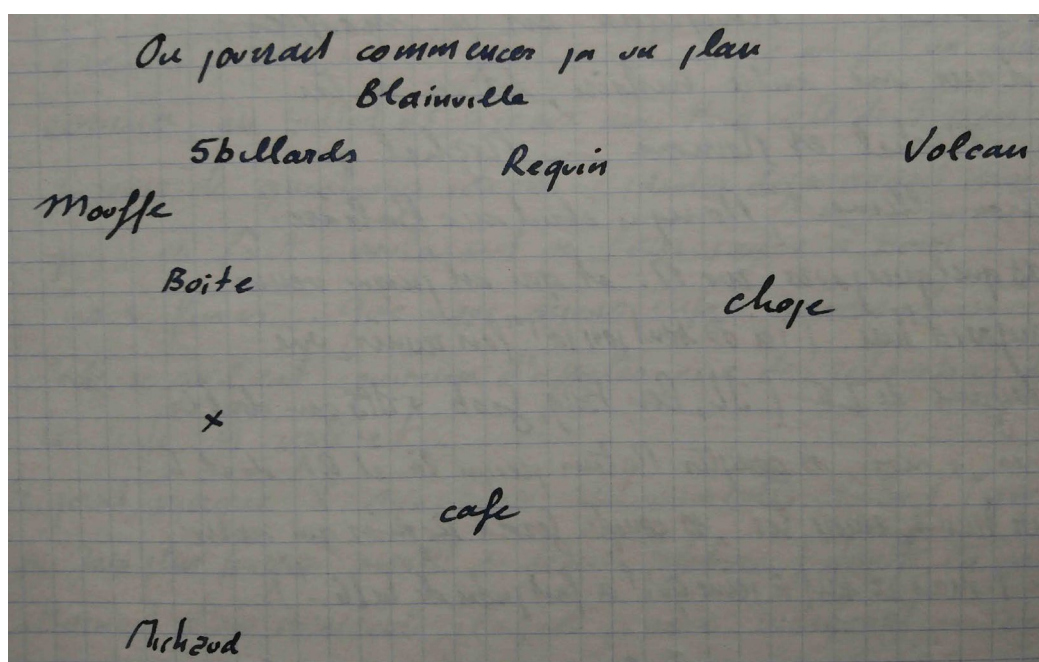 On pourrait commencer par un plan
Blainville
5 billards Requin Volcan
Mouffe
Boite
chope
x
cafe
Michaud